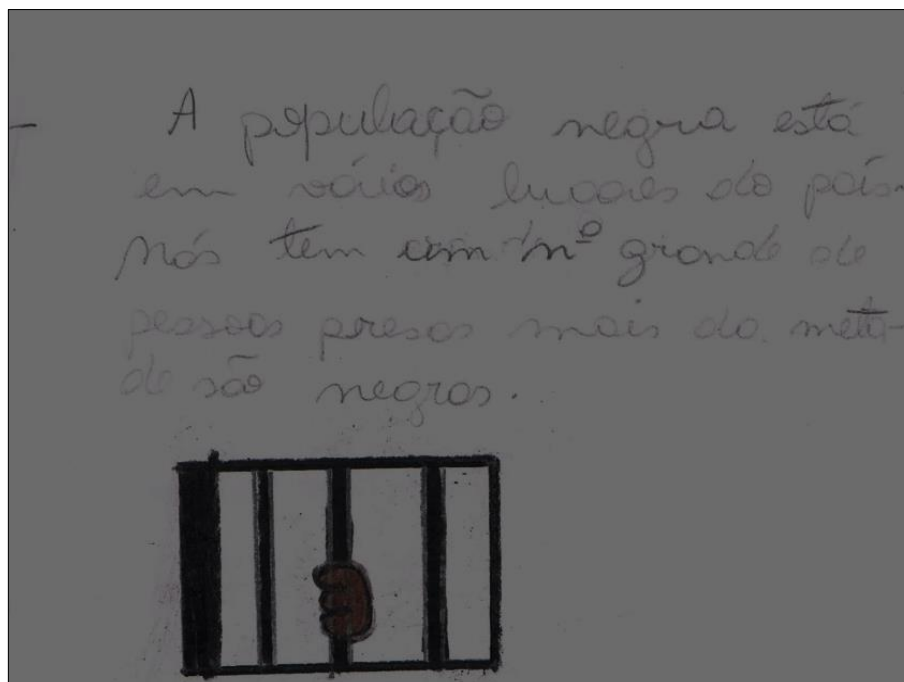 - A população negra está
em vários lugares do país.
Nós tem um nº grande de
pessoas presas mais da meta-
de são negros.